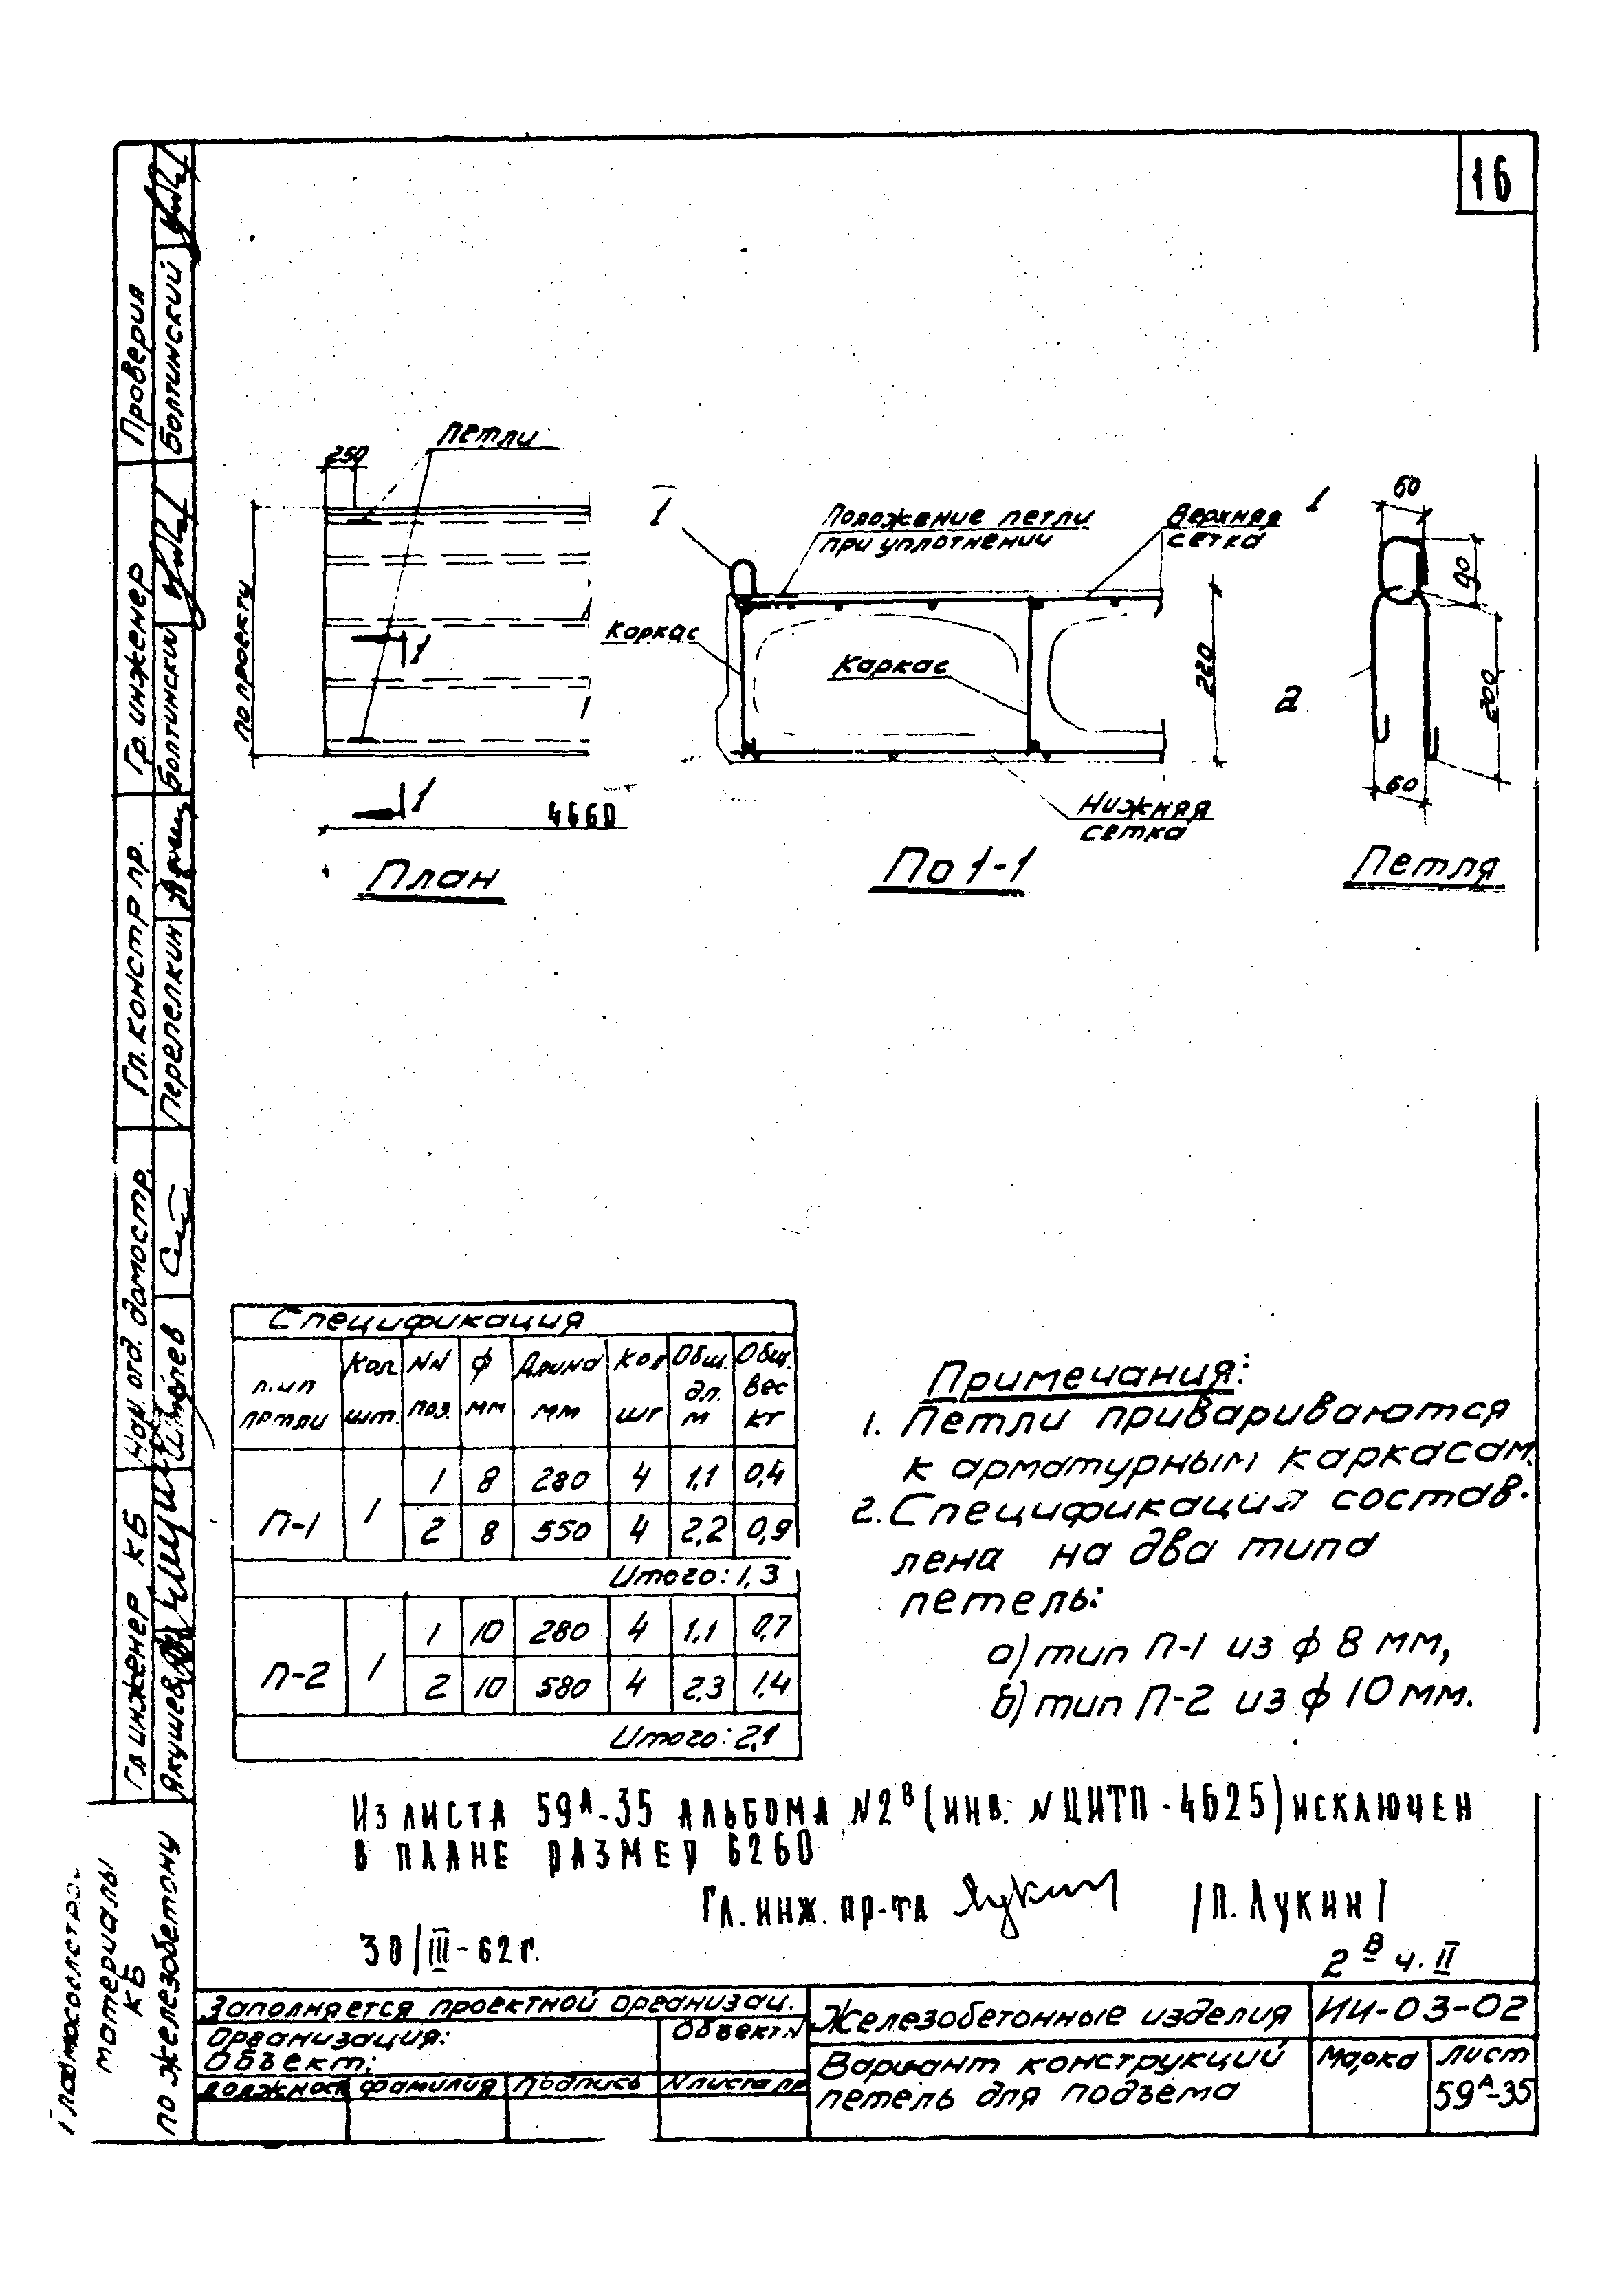 16
Петли
250
По проекту
1
1
4660
План
1
Положение петли
при уплотнении
Верхняя
сетка
Каркас
Каркас
220
Нижняя
сетка
По 1-1
1
60
90
200
2
60
Петля
Спецификация
Кол. NN ф Длина Кол Общ. Общ.
петли шт. поз. мм мм шт дл. м вес кг
П-1 1 1 8 280 4 1,1 0,4
2 8 550 4 2,2 0,9
Итого: 1,3
П-2 1 1 10 280 4 1,1 0,7
2 10 580 4 2,3 1,4
Итого: 2,1
Примечания:
1. Петли привариваются
к арматурным каркасам.
2. Спецификация состав-
лена на два типа
петель:
а) тип П-1 из ф 8 мм,
б) тип П-2 из ф 10 мм.
Из листа 59А-35 альбома N2В (инв. N ЦИТП-4625) исключен
в плане размер 6260
Гл. инж. пр-та /П. Лукин/
30/III-62г.
2В ч. II
Заполняется проектной организац.
Организация: Объект N
Объект:
должност фамилия подпись N листа пр
Железобетонные изделия ИИ-03-02
Вариант конструкций
петель для подъема
Марка Лист
59А-35
Проверил
Болтинский
Гр. инженер
Болтинский
Гл. констр пр.
Перепелкин
Нач. отд. домостр.
Гл инженер КБ
Якушев
Главмосспестро.
материалы
КБ
по железобетону